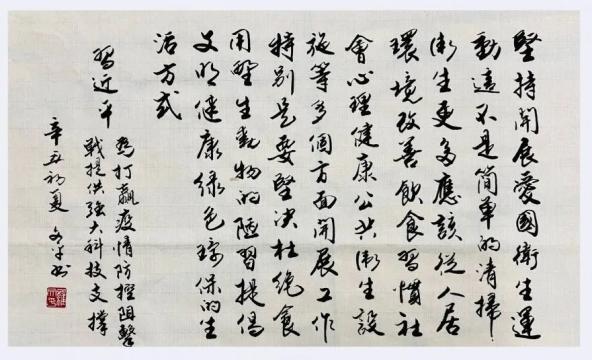 堅持開展愛國衛生運
動這不是簡單的清掃
衛生更多應該從人居
環境改善飲食習慣社
會心理健康公共衛生設
施等多個方面開展工作
特別是要堅決杜絕食
用野生動物的陋習提倡
文明健康綠色環保的生
活方式
習近平
為打贏疫情防控阻擊
戰提供強大科技支撐
辛丑初夏